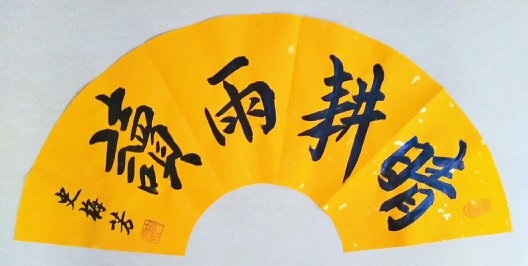 晴耕雨讀
史梅芳